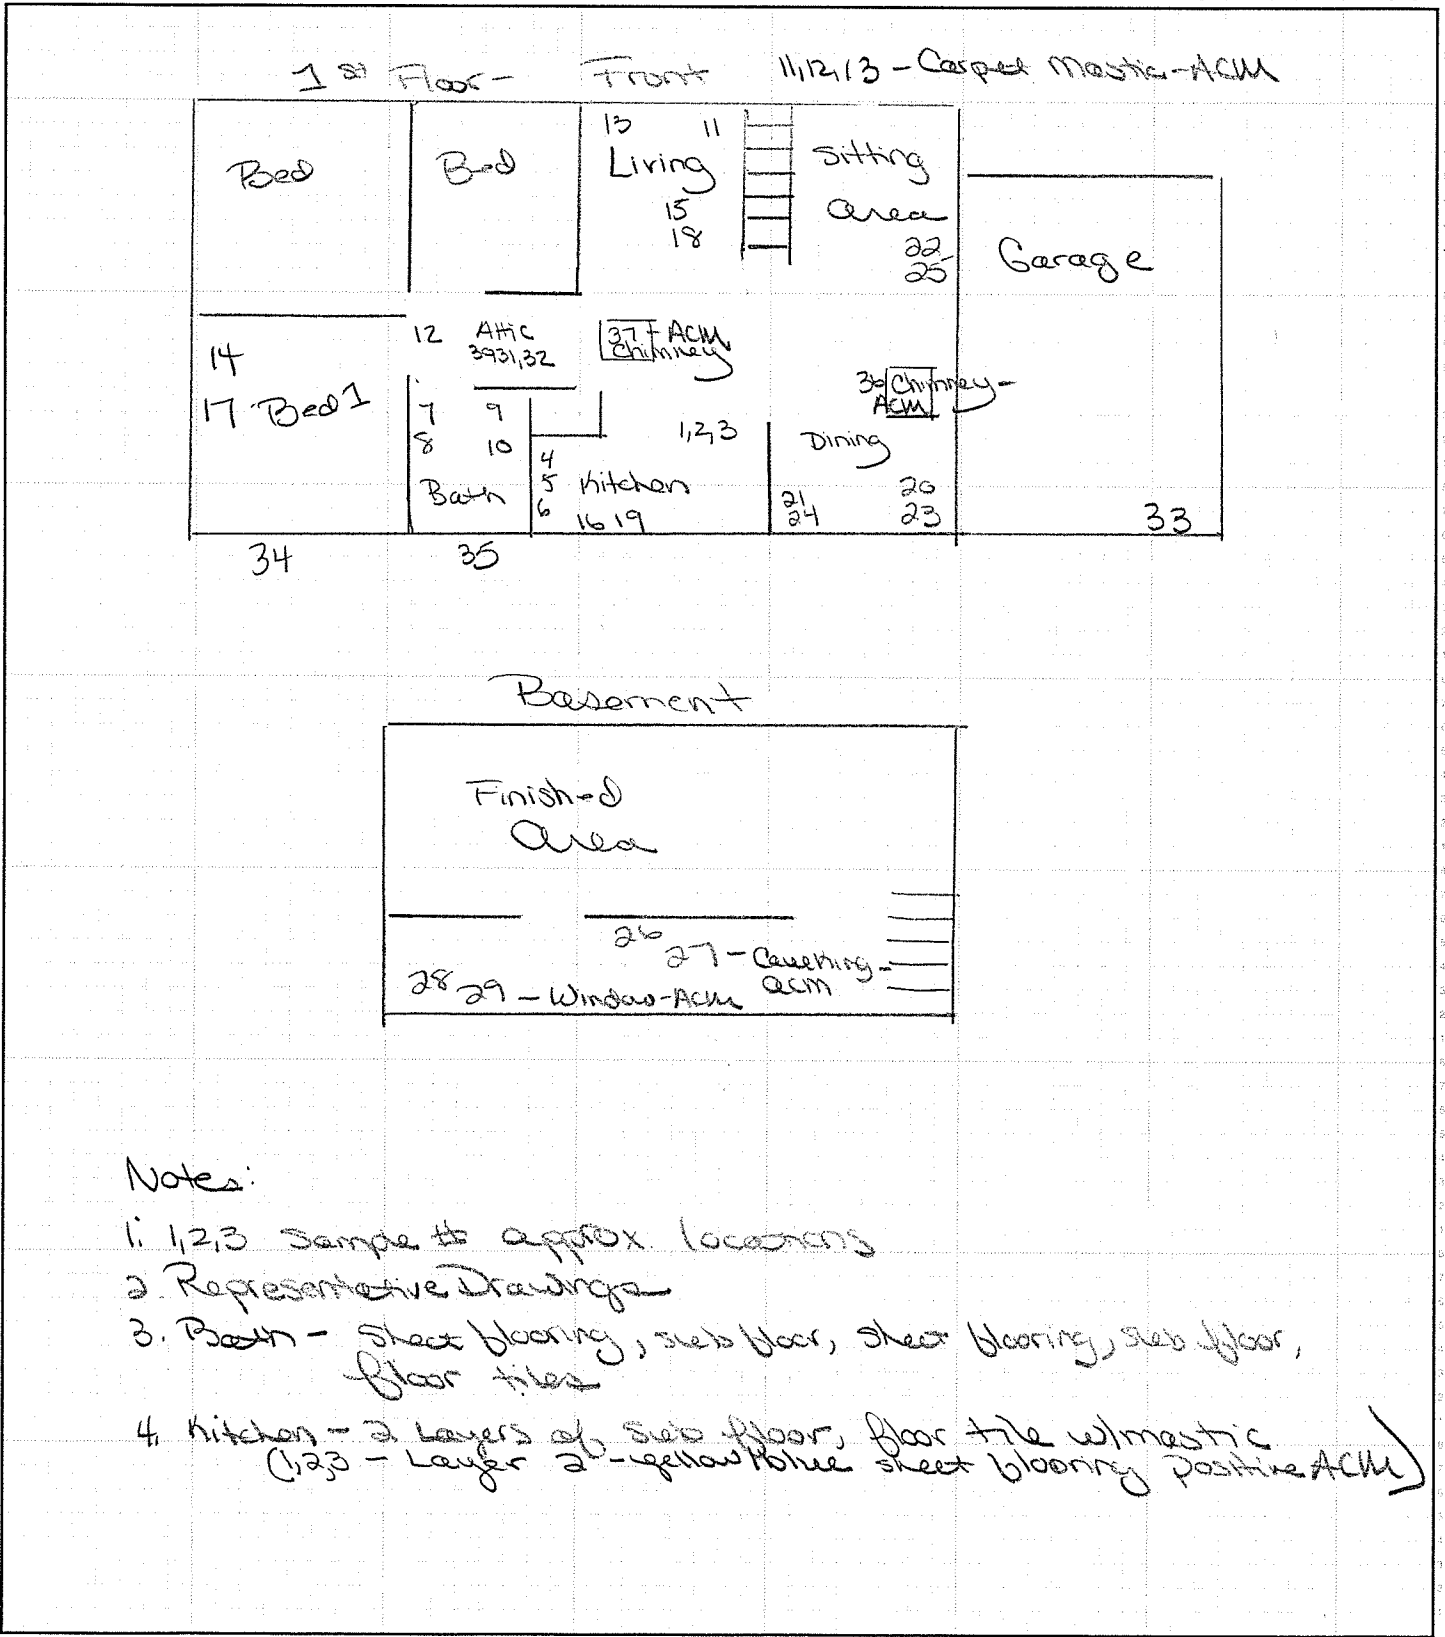 1st Floor - Front 11,12,13 - Carpet Mastic - ACM
Bed
Bed
13 11
Living
15
18
Sitting
Area
22
25
Garage
14
17 Bed 1
12
Attic
3931,32
37 - ACM
Chimney
36 Chimney -
ACM
7 9
8 10
Bath
4
5
6
Kitchen
1,2,3
16 19
Dining
21
24
20
23
33
34
35
Basement
Finished
Area
26
27 - Caulking -
ACM
28 29 - Window - ACM
Notes:
1. 1,2,3 Sample #s approx. locations
2. Representative Drawings
3. Bath - sheet flooring, sub floor, sheet flooring, sub floor,
floor tiles
4. Kitchen - 2 Layers of sub floor, floor tile w/mastic
(1,2,3 - Layer 2 - yellow/blue sheet flooring positive ACM)